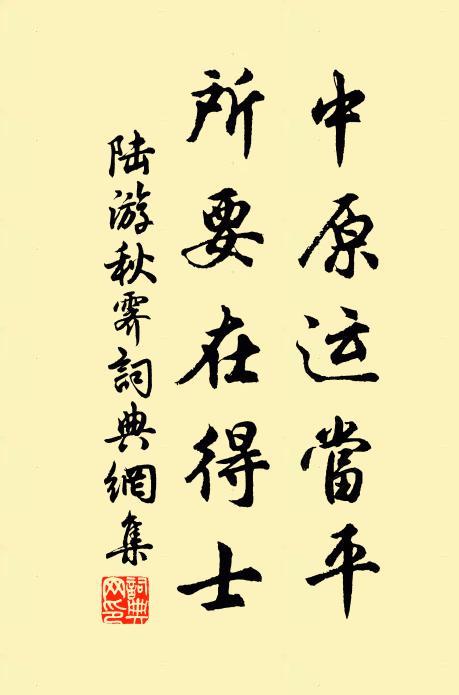 中原运當平
所要在得士
陆游秋霽詞典網集
詞典网印